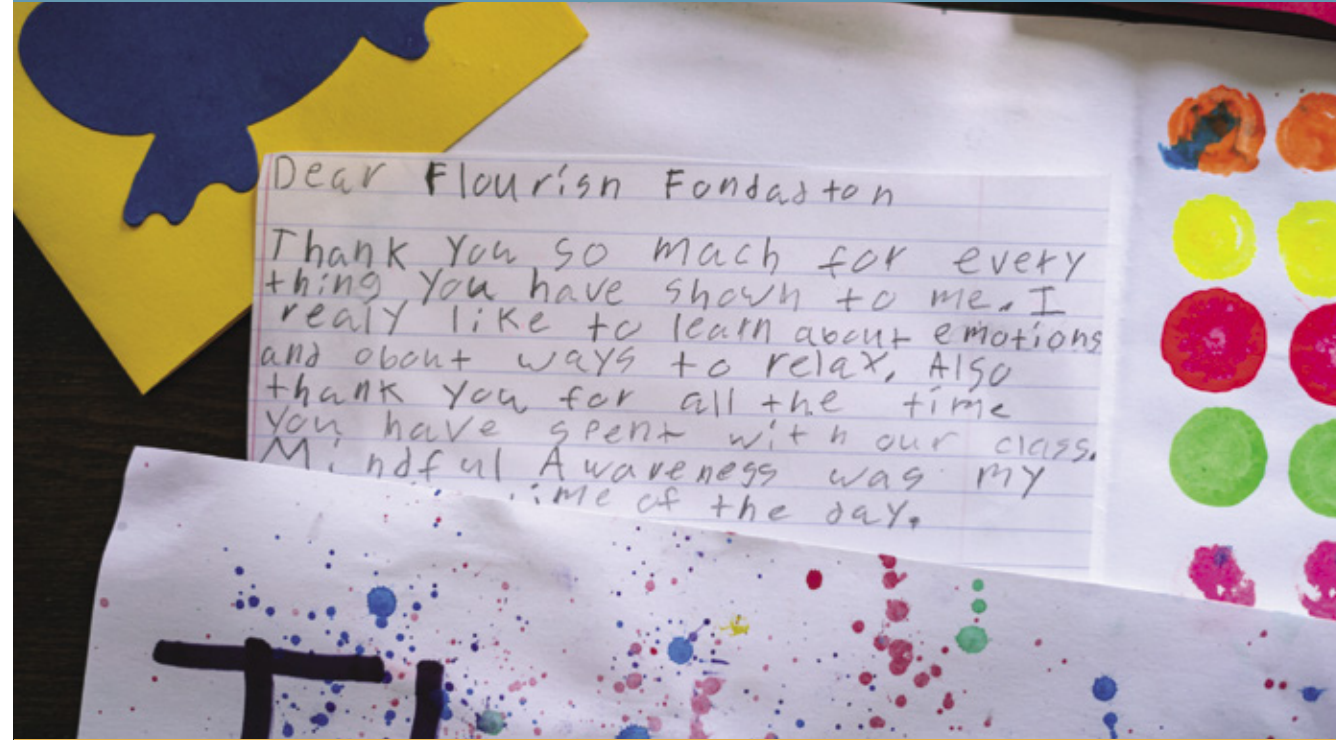 Dear Flourish Fondaston
Thank You so mach for every
thing You have shown to me. I
realy like to learn about emotions
and obout ways to relax. Also
thank you for all the time
you have spent with our class.
Mindful Awareness was my
of the day.